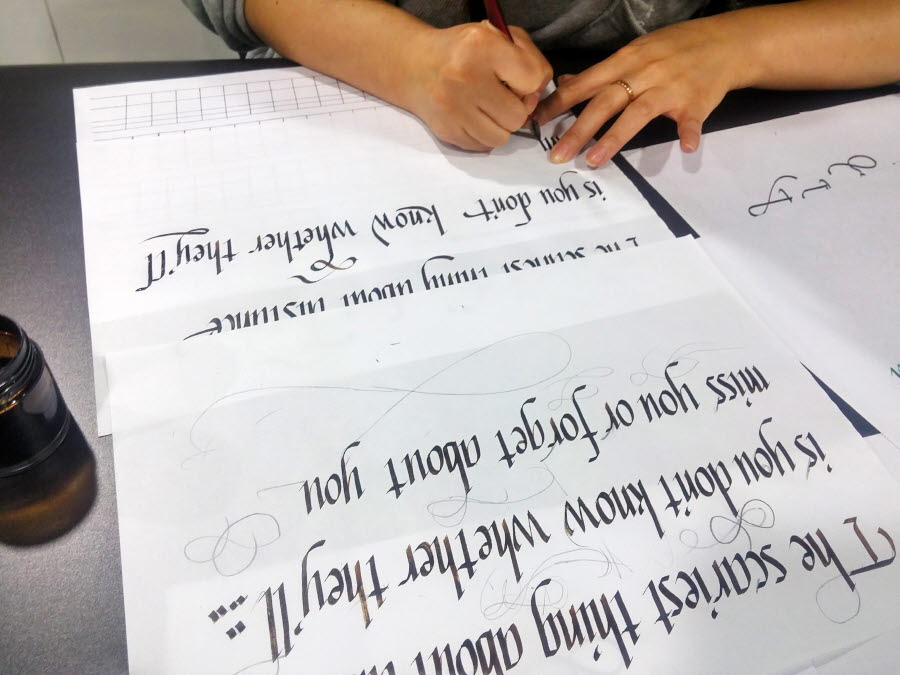 The scariest thing about
is you don't know whether they'll...
miss you or forget about you
The scariest thing about distance
is you don't know whether they'll